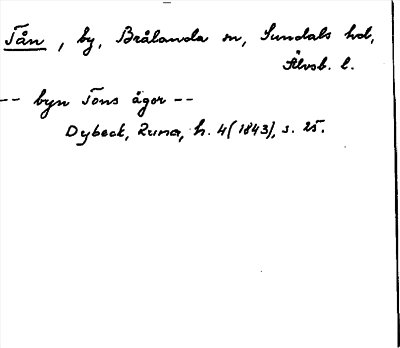 Tån, by, Brålanda sn, Sundals hd,
Älvsb. l.
-- byn Tons ägor --
Dybeck, Runa, h. 4 (1843), s. 25.